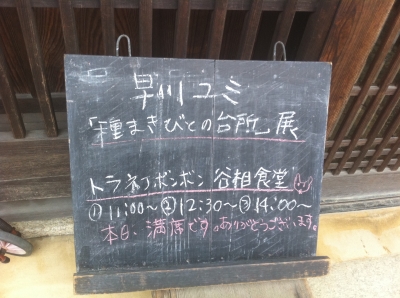 早川ユミ
「種まきびとの台所」展
トラネコボンボン 谷相食堂
①11:00〜②12:30〜③14:00〜
本日、満席です。ありがとうございます。